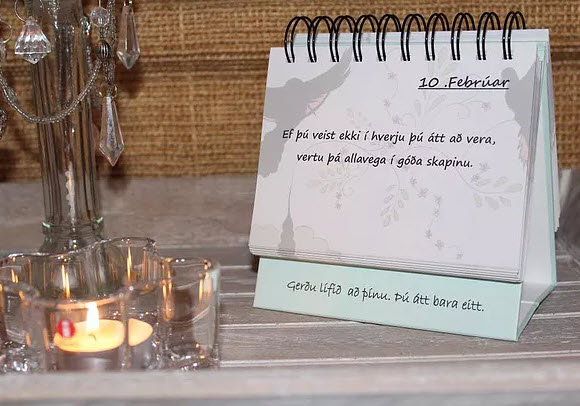 10 .Febrúar
Ef þú veist ekki í hverju þú átt að vera,
vertu þá allavega í góða skapinu.
Gerðu lífið að þínu. Þú átt bara eitt.